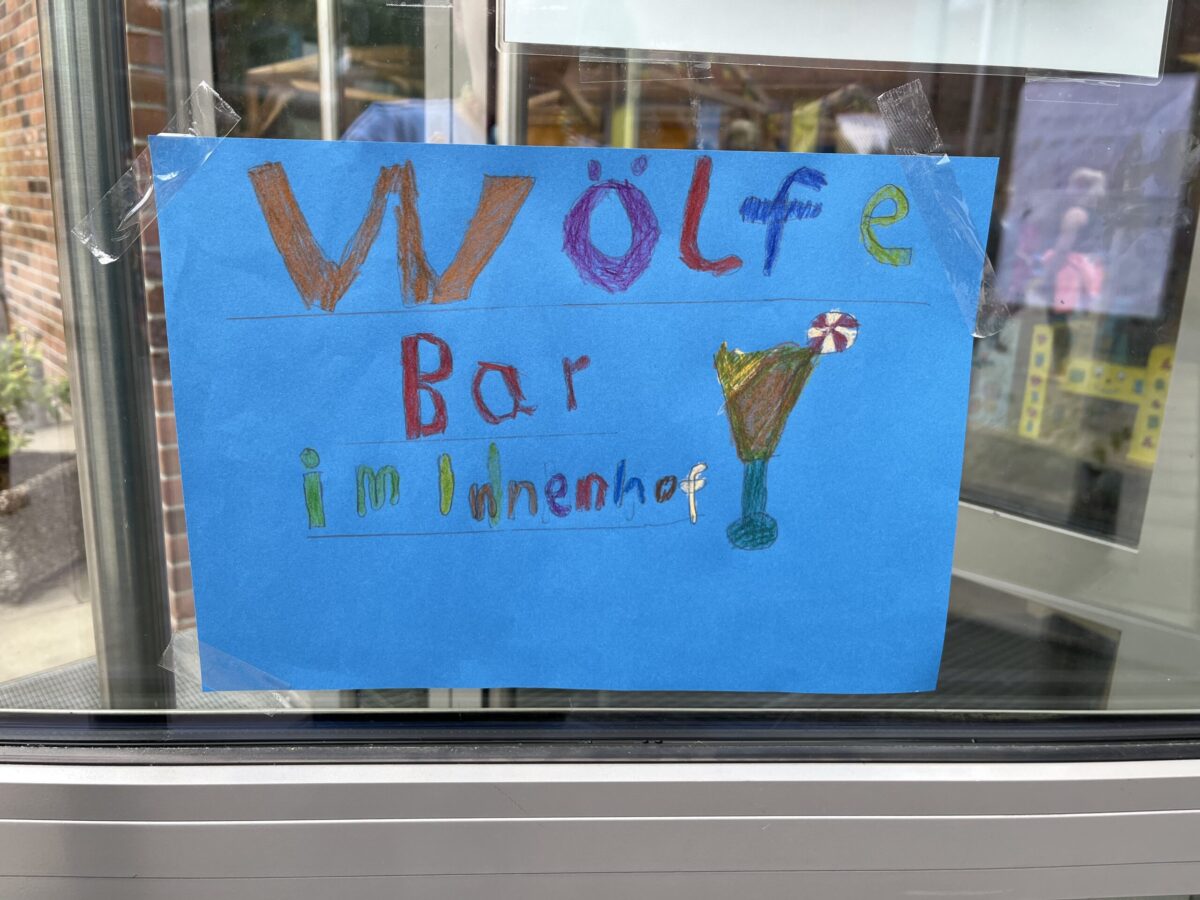 Wölfe
Bar
im Innenhof